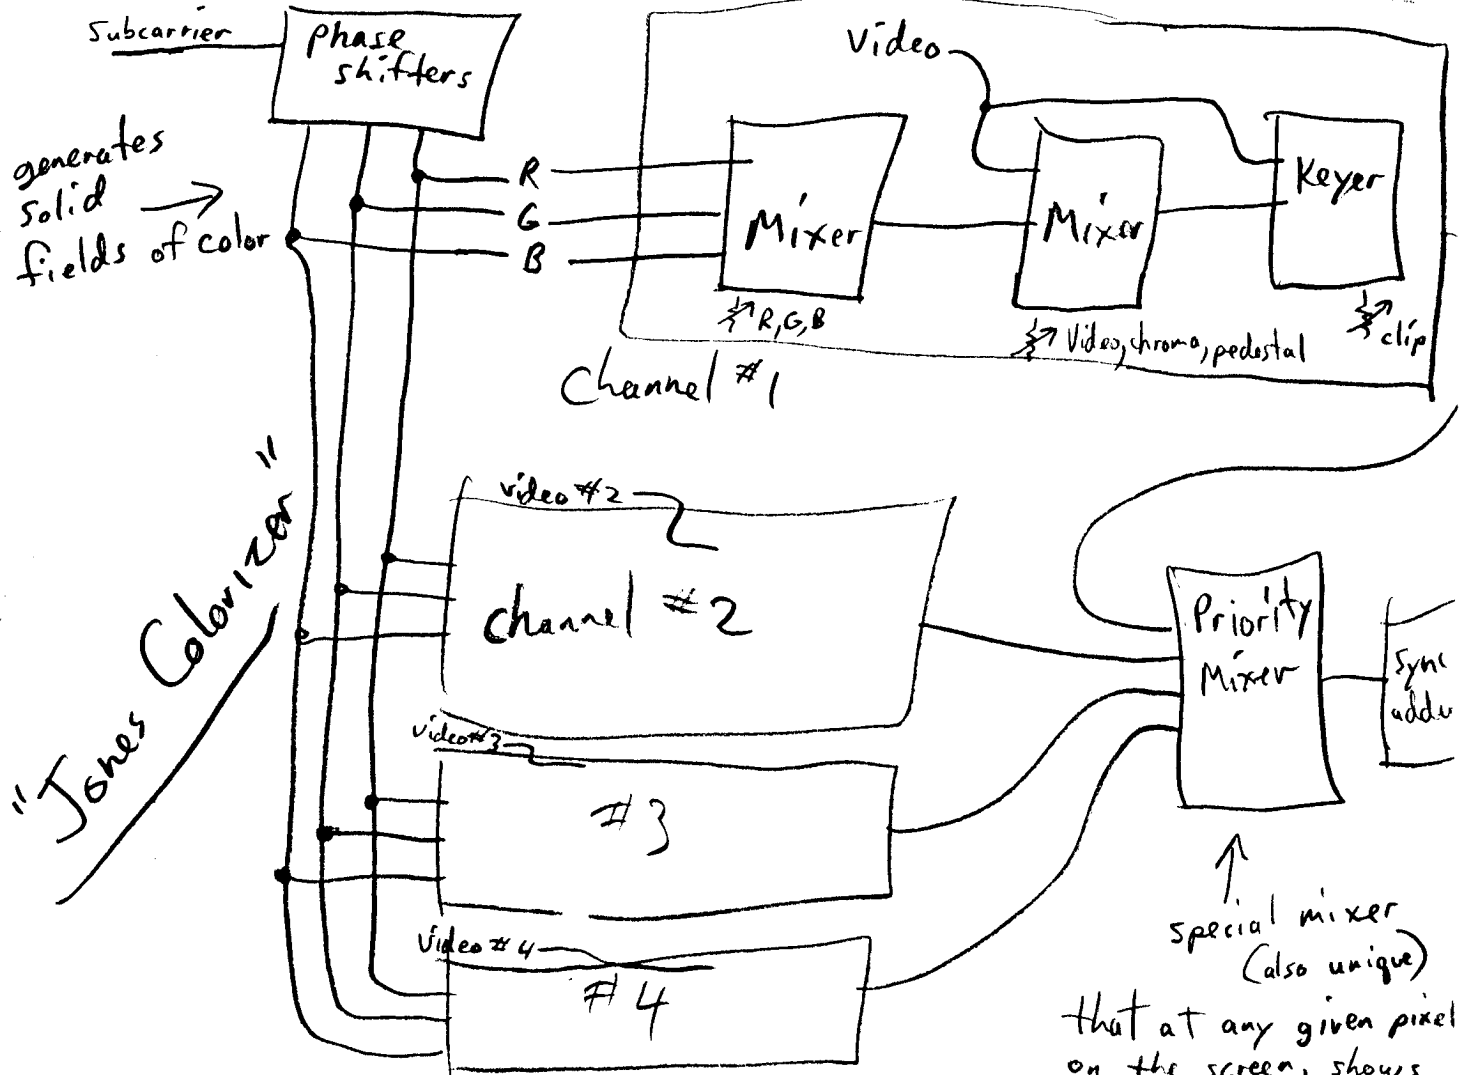 Subcarrier
phase
shifters
generates
solid
fields of color
R
G
B
Video
Mixer
Mixer
Keyer
R, G, B
Video, chroma, pedestal
clip
Channel #1
"Jones Colorizer"
video #2
channel #2
video #3
#3
video #4
#4
Priority
Mixer
Sync
special mixer
(also unique)
that at any given pixel
on the screen, shows